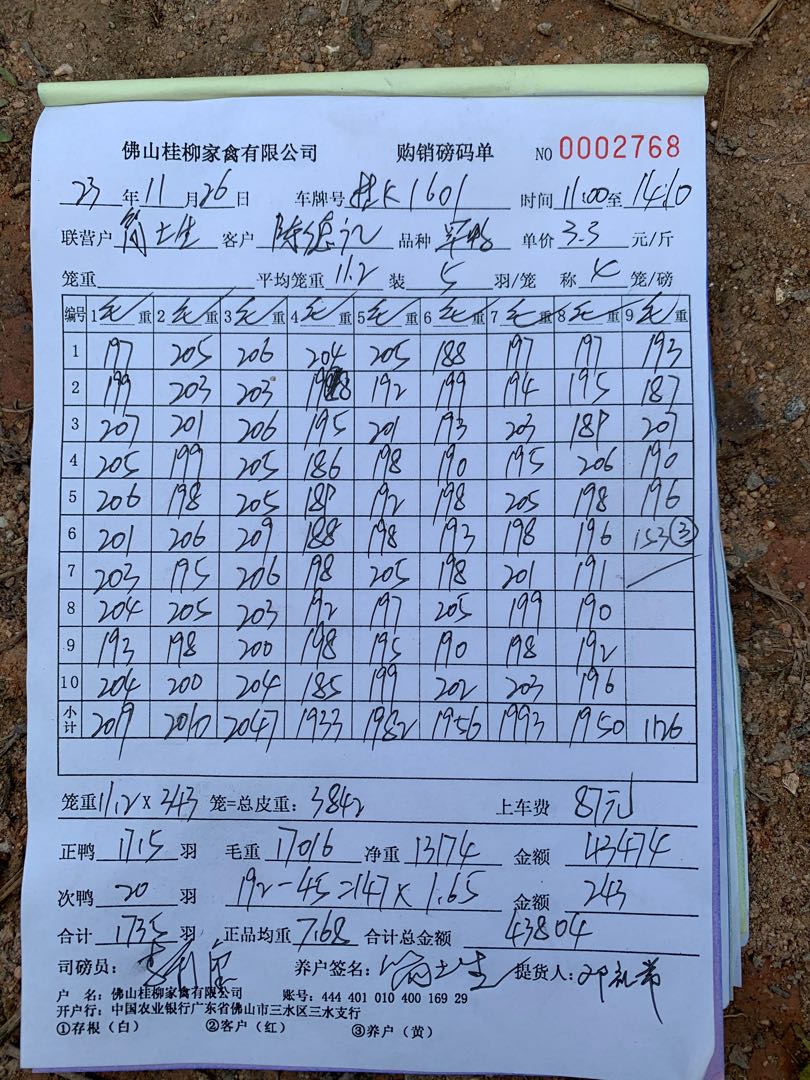 佛山桂柳家禽有限公司 购销磅码单 NO 0002768
23年11月26日 车牌号 桂K1601 时间 11:00至14:10
联营户 简土生 客户 陈德记 品种 单价 3.3 元/斤
笼重 平均笼重 11.2 装 5 羽/笼 称 4 笼/磅
编号 1 毛重 2 毛重 3 毛重 4 毛重 5 毛重 6 毛重 7 毛重 8 毛重 9 毛重
1 197 205 206 204 205 188 197 197 193
2 199 203 203 198 192 199 194 195 187
3 207 201 206 195 201 193 203 189 207
4 205 199 205 186 198 190 195 206 190
5 206 198 205 189 192 198 205 198 196
6 201 206 209 188 198 193 198 196 153③
7 203 195 206 198 205 198 201 191
8 204 205 203 192 197 205 199 190
9 193 198 200 198 195 190 198 192
10 204 200 204 185 199 202 203 196
小计 2019 2010 2047 1933 1982 1956 1993 1950 1126
笼重 11.2 X 343 笼=总皮重: 3842 上车费 87元
正鸭 1715 羽 毛重 17016 净重 13174 金额 43474
次鸭 20 羽 192-45=147×1.65 金额 243
合计 1735 羽 正品均重 7.68 合计总金额 43804
司磅员: 养户签名: 简土生 提货人:
户 名: 佛山桂柳家禽有限公司 账号: 444 401 010 400 169 29
开户行: 中国农业银行广东省佛山市三水区三水支行
①存根（白） ②客户（红） ③养户（黄）